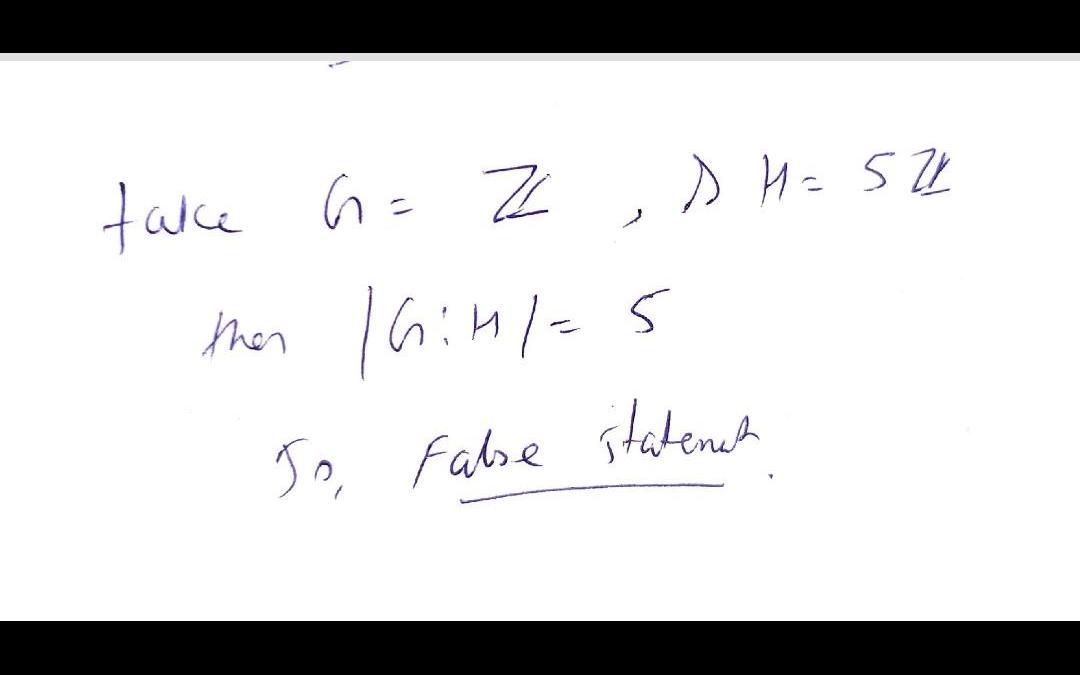 take G = ℤ, & H = 5ℤ
then |G:H| = 5
So, False statement.